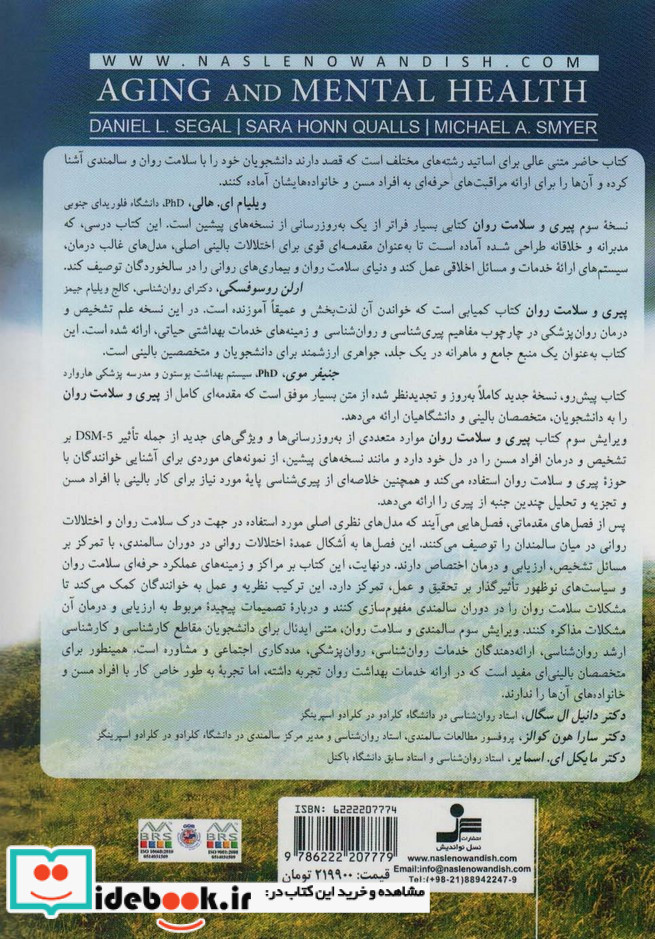 WWW.NASLENOWANDISH.COM
AGING AND MENTAL HEALTH
DANIEL L. SEGAL | SARA HONN QUALLS | MICHAEL A. SMYER
کتاب حاضر متنی عالی برای اساتید رشته‌های مختلف است که قصد دارند دانشجویان خود را با سلامت روان و سالمندی آشنا
کرده و آن‌ها را برای ارائه مراقبت‌های حرفه‌ای به افراد مسن و خانواده‌هایشان آماده کنند.
ویلیام ای. هالی، PhD، دانشگاه فلوریدای جنوبی
نسخهٔ سوم پیری و سلامت روان کتابی بسیار فراتر از یک به‌روزرسانی از نسخه‌های پیشین است. این کتاب درسی، که
مدبرانه و خلاقانه طراحی شده آماده است تا به‌عنوان مقدمه‌ای قوی برای اختلالات بالینی اصلی، مدل‌های غالب درمان،
سیستم‌های ارائهٔ خدمات و مسائل اخلاقی عمل کند و دنیای سلامت روان و بیماری‌های روانی را در سالخوردگان توصیف کند.
ارلن روسوفسکی، دکترای روان‌شناسی، کالج ویلیام جیمز
پیری و سلامت روان کتاب کمیابی است که خواندن آن لذت‌بخش و عمیقاً آموزنده است. در این نسخه علم تشخیص و
درمان روان‌پزشکی در چارچوب مفاهیم پیری‌شناسی و روان‌شناسی و زمینه‌های خدمات بهداشتی حیاتی، ارائه شده است. این
کتاب به‌عنوان یک منبع جامع و ماهرانه در یک جلد، جواهری ارزشمند برای دانشجویان و متخصصین بالینی است.
جنیفر موی، PhD، سیستم بهداشت بوستون و مدرسه پزشکی هاروارد
کتاب پیش‌رو، نسخهٔ جدید کاملاً به‌روز و تجدیدنظر شده از متن بسیار موفق است که مقدمه‌ای کامل از پیری و سلامت روان
را به دانشجویان، متخصصان بالینی و دانشگاهیان ارائه می‌دهد.
ویرایش سوم کتاب پیری و سلامت روان موارد متعددی از به‌روزرسانی‌ها و ویژگی‌های جدید از جمله تأثیر DSM-5 بر
تشخیص و درمان افراد مسن را در دل خود دارد و مانند نسخه‌های پیشین، از نمونه‌های موردی برای آشنایی خوانندگان با
حوزهٔ پیری و سلامت روان استفاده می‌کند و همچنین خلاصه‌ای از پیری‌شناسی پایهٔ مورد نیاز برای کار بالینی با افراد مسن
و تجزیه و تحلیل چندین جنبه از پیری را ارائه می‌دهد.
پس از فصل‌های مقدماتی، فصل‌هایی می‌آیند که مدل‌های نظری اصلی مورد استفاده در جهت درک سلامت روان و اختلالات
روانی در میان سالمندان را توصیف می‌کنند. این فصل‌ها به اَشکال عمدهٔ اختلالات روانی در دوران سالمندی، با تمرکز بر
مسائل تشخیص، ارزیابی و درمان اختصاص دارند. درنهایت، این کتاب بر مراکز و زمینه‌های عملکرد حرفه‌ای سلامت روان
و سیاست‌های نوظهور تأثیرگذار بر تحقیق و عمل، تمرکز دارد. این ترکیب نظریه و عمل به خوانندگان کمک می‌کند تا
مشکلات سلامت روان را در دوران سالمندی مفهوم‌سازی کنند و دربارهٔ تصمیمات پیچیدهٔ مربوط به ارزیابی و درمان آن
مشکلات مذاکره کنند. ویرایش سوم سالمندی و سلامت روان، متنی ایدئال برای دانشجویان مقاطع کارشناسی و کارشناسی
ارشد روان‌شناسی، ارائه‌دهندگان خدمات روان‌شناسی، روان‌پزشکی، مددکاری اجتماعی و مشاوره است. همینطور برای
متخصصان بالینی‌ای مفید است که در ارائه خدمات بهداشت روان تجربه داشته، اما تجربهٔ به طور خاص کار با افراد مسن و
خانواده‌های آن‌ها را ندارند.
دکتر دانیل ال سگال، استاد روان‌شناسی در دانشگاه کلرادو در کلرادو اسپرینگز
دکتر سارا هون کوالز، پروفسور مطالعات سالمندی، استاد روان‌شناسی و مدیر مرکز سالمندی در دانشگاه کلرادو در کلرادو اسپرینگز
دکتر مایکل ای. اسمایر، استاد روان‌شناسی و استاد سابق دانشگاه باکنل
ISBN: 6222207774
9 786222 207779
قیمت: ۲۱۹۹۰۰ تومان
انتشارات
نسل نواندیش
www.naslenowandish.com
Email:info@naslenowandish.com
Tel:(+98-21)88942247-9
BRS
BRS
مشاهده و خرید این کتاب در:
idebook.ir